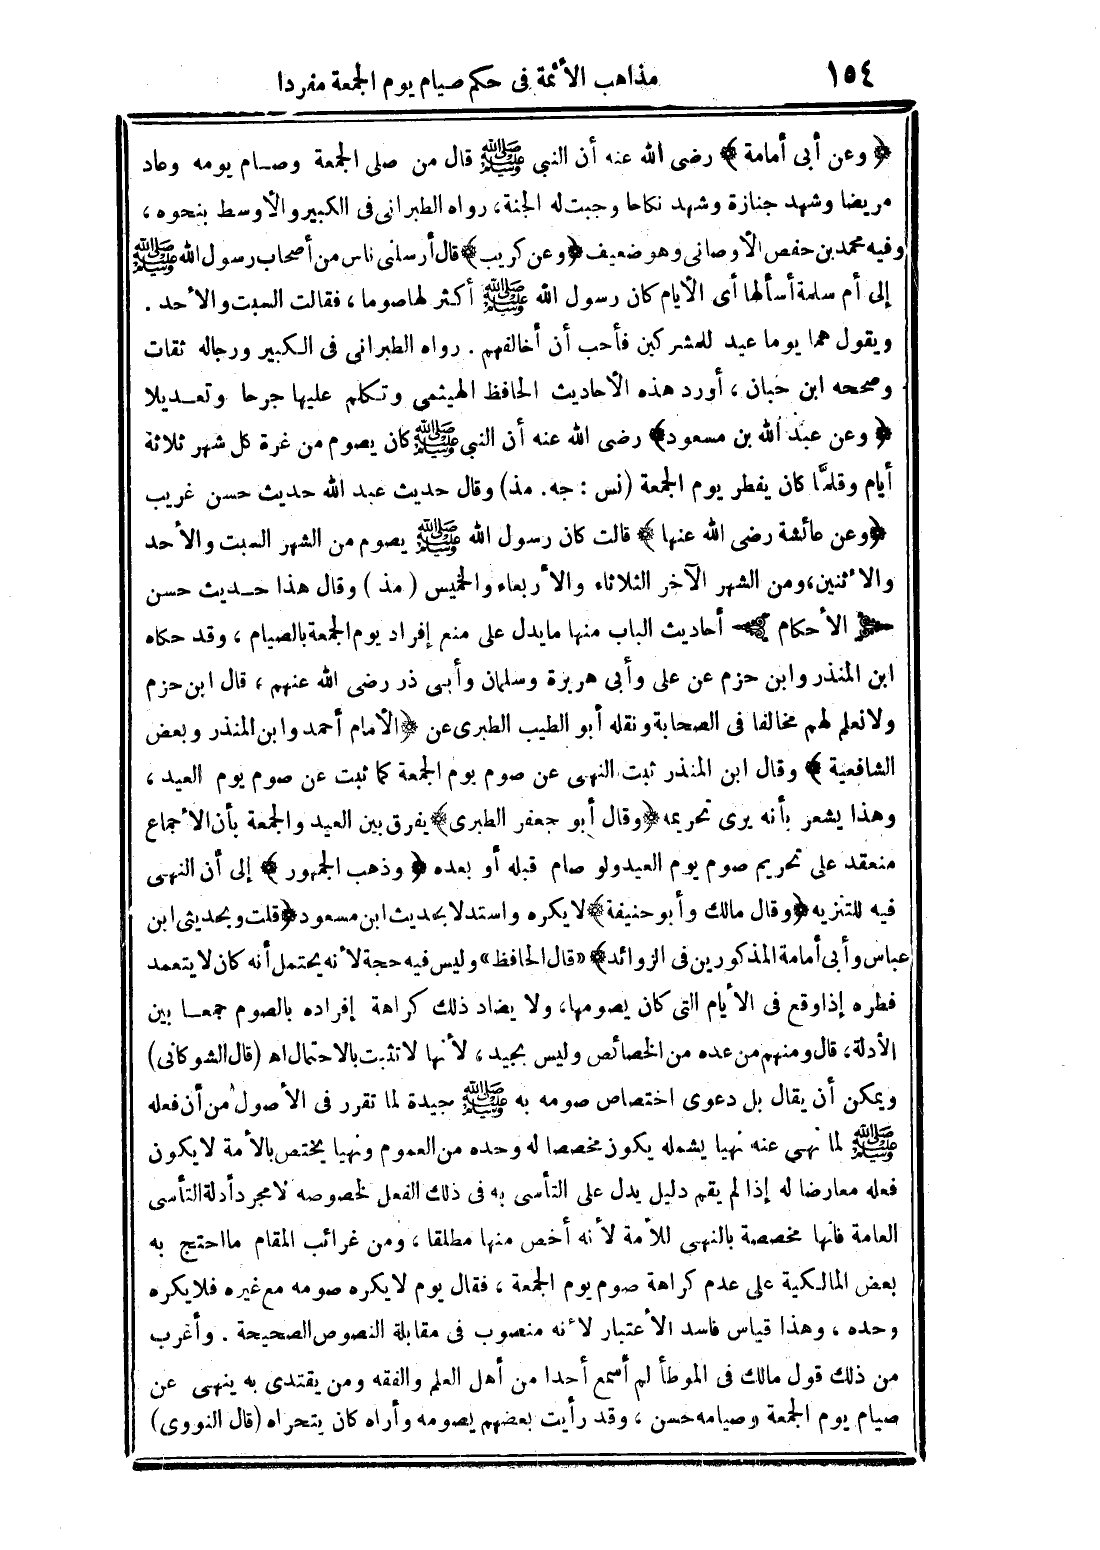 ١٥٤
مذاهب الأئمة فى حكم صيام يوم الجمعة مفردا
﴿ وعن أبى أمامة ﴾ رضى الله عنه أن النبى ﷺ قال من صلى الجمعة وصـام يومه وعاد
مريضا وشهد جنازة وشهد نكاحا وجبت له الجنة، رواه الطبرانى فى الكبير والأوسط بنحوه ،
وفيه محمد بن حفص الأوصانى وهو ضعيف ﴿ وعن كريب ﴾ قال أرسلنى ناس من أصحاب رسول الله ﷺ
إلى أم سلمة أسألها أى الأيام كان رسول الله ﷺ أكثر لها صوما ، فقالت السبت والأحد .
ويقول هما يوما عيد للمشركين فأحب أن أخالفهم . رواه الطبرانى فى الكبير ورجاله ثقات
وصححه ابن حبان ، أورد هذه الأحاديث الحافظ الهيثمى وتكلم عليها جرحا وتعـديلا
﴿ وعن عبد الله بن مسعود ﴾ رضى الله عنه أن النبى ﷺ كان يصوم من غرة كل شهر ثلاثة
أيام وقلمَّا كان يفطر يوم الجمعة (نس : جه. مذ) وقال حديث عبد الله حديث حسن غريب
﴿ وعن عائشة رضى الله عنها ﴾ قالت كان رسول الله ﷺ يصوم من الشهر السبت والأحد
والاثنين، ومن الشهر الآخر الثلاثاء والأربعاء والخميس ( مذ ) وقال هذا حـديث حسن
الأحكام أحاديث الباب منها مايدل على منع إفراد يوم الجمعة بالصيام ، وقد حكاه
ابن المنذر وابن حزم عن على وأبى هريرة وسلمان وأبى ذر رضى الله عنهم ، قال ابن حزم
ولا نعلم لهم مخالفا فى الصحابة ونقله أبو الطيب الطبرى عن ﴿ الأمام أحمد وابن المنذر وبعض
الشافعية ﴾ وقال ابن المنذر ثبت النهى عن صوم يوم الجمعة كما ثبت عن صوم يوم العيد ،
وهذا يشعر بأنه يرى تحريمه ﴿ وقال أبو جعفر الطبرى ﴾ يفرق بين العيد والجمعة بأن الأجماع
منعقد على تحريم صوم يوم العيد ولو صام قبله أو بعده ﴿ وذهب الجمهور ﴾ إلى أن النهى
فيه للتنزيه ﴿ وقال مالك وأبو حنيفة ﴾ لا يكره واستدلا بحديث ابن مسعود ﴿ قلت وبحديثى ابن
عباس وأبى أمامة المذكورين فى الزوائد ﴾ «قال الحافظ» وليس فيه حجة لأنه يحتمل أنه كان لا يتعمد
فطره إذا وقع فى الأيام التى كان يصومها، ولا يضاد ذلك كراهة إفراده بالصوم جمعـا بين
الأدلة، قال ومنهم من عده من الخصائص وليس بجيد ، لأنها لا تثبت بالاحتمال اهـ (قال الشوكانى)
ويمكن أن يقال بل دعوى اختصاص صومه به ﷺ جيدة لما تقرر فى الأصول من أن فعله
ﷺ لما نهى عنه نهيا يشمله يكون مخصصا له وحده من العموم ونهيا يختص بالأمة لا يكون
فعله معارضا له إذا لم يقم دليل يدل على التأسى به فى ذلك الفعل لخصوصه لا مجرد أدلة التأسى
العامة فانها مخصصة بالنهى للأمة لأنه أخص منها مطلقا ، ومن غرائب المقام ما احتج به
بعض المالكية على عدم كراهة صوم يوم الجمعة ، فقال يوم لا يكره صومه مع غيره فلا يكره
وحده ، وهذا قياس فاسد الأعتبار لأنه منصوب فى مقابلة النصوص الصحيحة . وأغرب
من ذلك قول مالك فى الموطأ لم أسمع أحدا من أهل العلم والفقه ومن يقتدى به ينهى عن
صيام يوم الجمعة وصيامه حسن ، وقد رأيت بعضهم يصومه وأراه كان يتحراه (قال النووى)